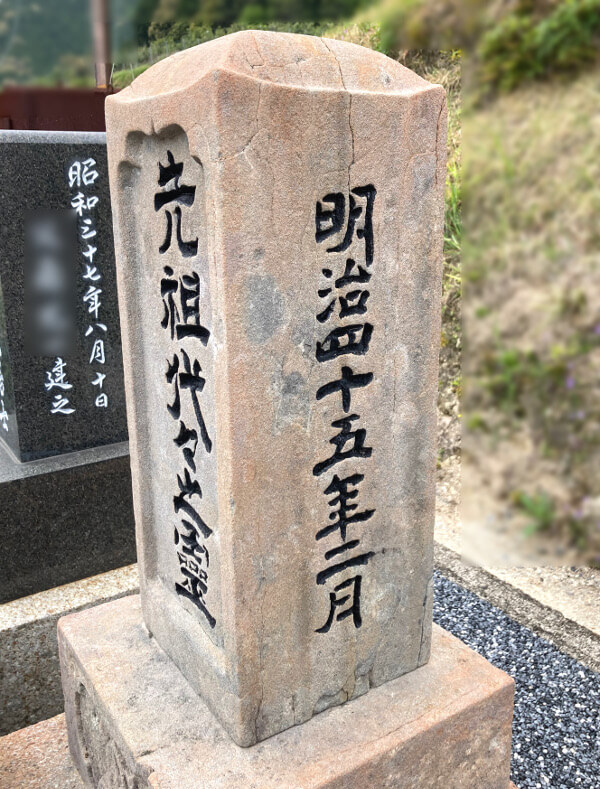 明治四十五年二月
先祖代々之霊
昭和三十七年八月十日
建之